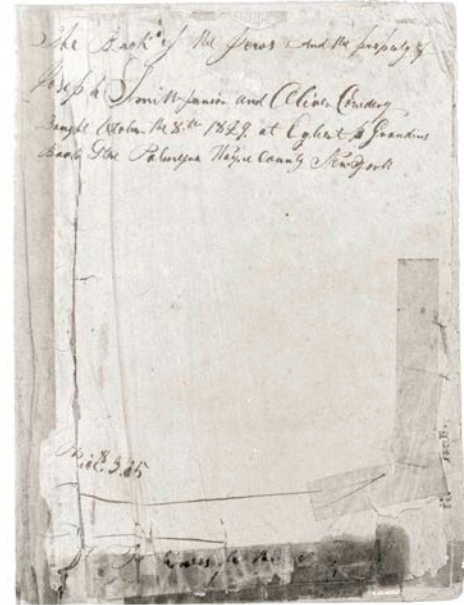 The Book of the Jews and the property of
Joseph Smith Junior and Oliver Cowdery
Bought October the 8th 1829 at Egbert B Grandins
Book Store Palmyra Wayne County New York
Price $ 3.75